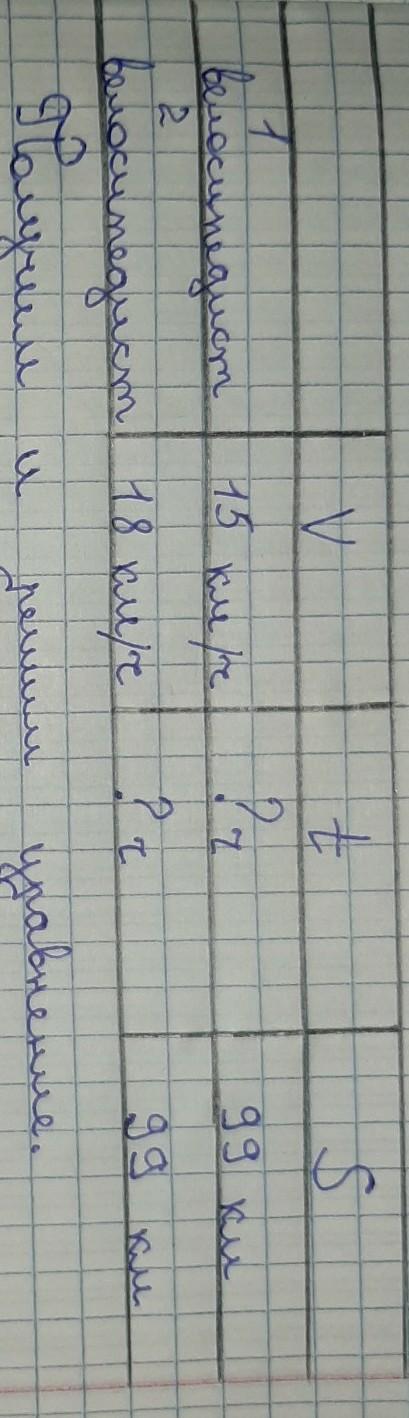 V t S
1 велосипедист 15 км/ч ? ч 99 км
2 велосипедист 18 км/ч ? ч 99 км
Получим и решим уравнение.